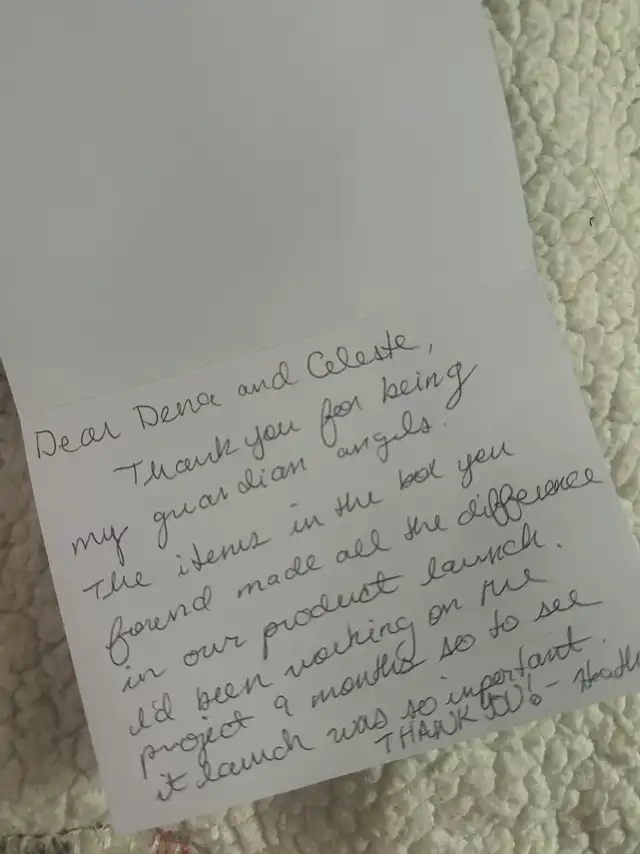 Dear Dena and Celeste,
Thank you for being
my guardian angels.
The items in the box you
found made all the difference
in our product launch.
I'd been working on the
project 9 months so to see
it launch was so important.
THANK YOU! -